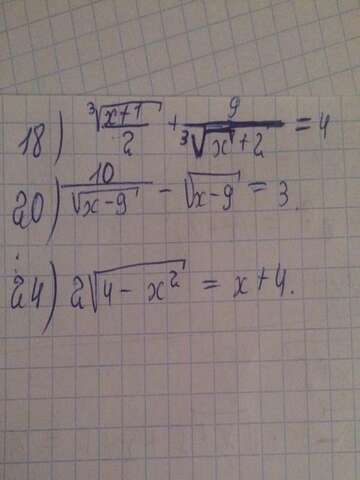 18) ∛(x+1)/2 + 9/(∛x+2) = 4
20) 10/√(x-9) - √(x-9) = 3.
24) 2√(4-x²) = x+4.